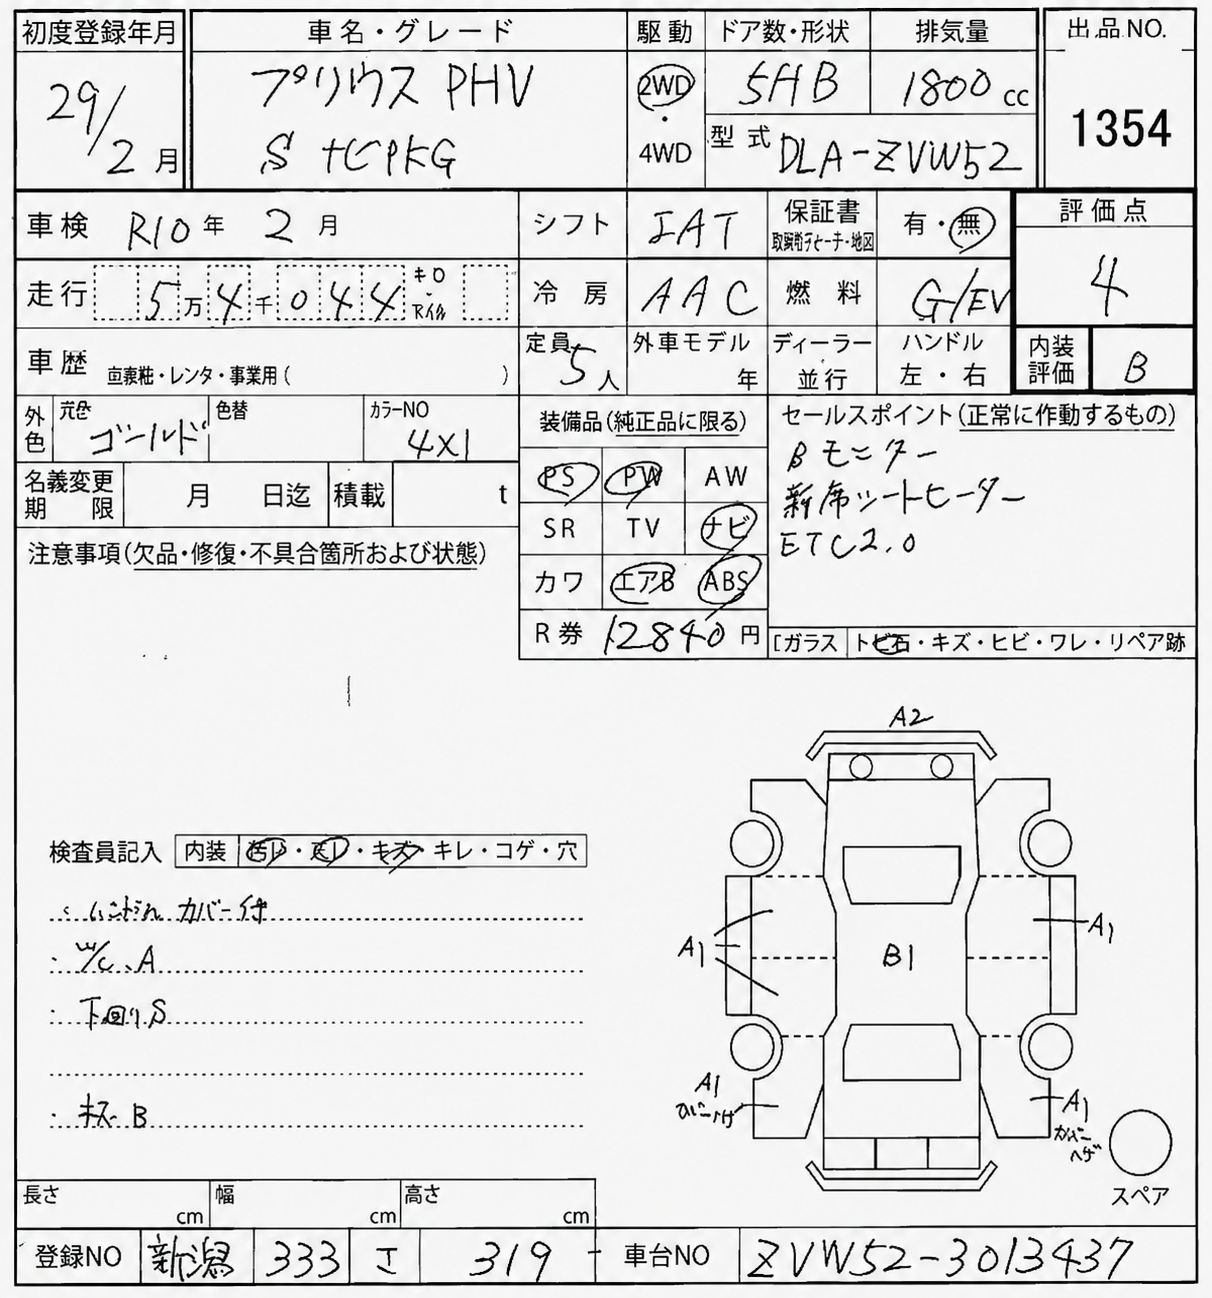 初度登録年月 車名・グレード 駆動 ドア数・形状 排気量 出品NO.
29/2月 プリウス PHV 2WD・4WD 5HB 1800cc 1354
S ナビPKG 型式 DLA-ZVW52
車検 R10年 2月 シフト IAT 保証書 有・無 評価点
走行 5万4千044 キロ・マイル 冷房 AAC 燃料 G/EV 4
車歴 自家用・レンタ・事業用( ) 定員 5人 外車モデル 年 ディーラー 並行 ハンドル 左・右 内装評価 B
外色 元色 ゴールド 色替 カラーNO 4X1 装備品(純正品に限る) セールスポイント(正常に作動するもの)
名義変更期限 月 日迄 積載 t PS PW AW Bモニター
SR TV ナビ シートヒーター
注意事項(欠品・修復・不具合箇所および状態) カワ エアB ABS ETC2.0
R券 12840円 [ガラス トビ石・キズ・ヒビ・ワレ・リペア跡
A2
検査員記入 内装 ・キズ・キレ・コゲ・穴
カバー付
W/C、A A1 B1 A1
下回りS
A1 A1
キズ B カバー
スペア
長さ cm 幅 cm 高さ cm
登録NO 新潟 333 319 車台NO ZVW52-3013437